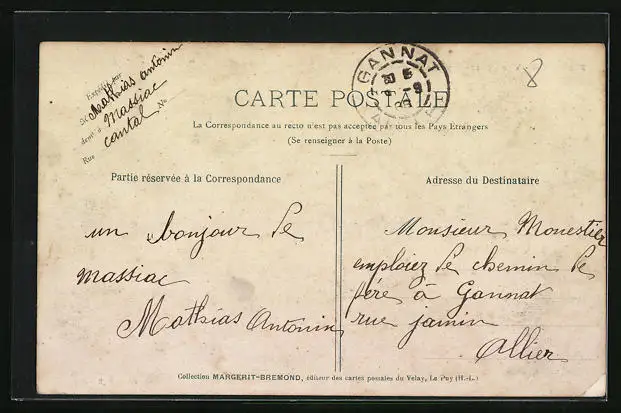 Expédié par
M Mathias antonin
demt à massiac
Rue cantal No
GANNAT
8
CARTE POSTALE
La Correspondance au recto n'est pas acceptée par tous les Pays Etrangers
(Se renseigner à la Poste)
Partie réservée à la Correspondance
un bonjour de
massiac
Mathias Antonin
Adresse du Destinataire
Monsieur Monestier
emploiez de chemin de
fére à Gannat
rue jamin
Allier
Collection MARGERIT-BREMOND, éditeur des cartes postales du Velay, Le Puy (H.-L.)